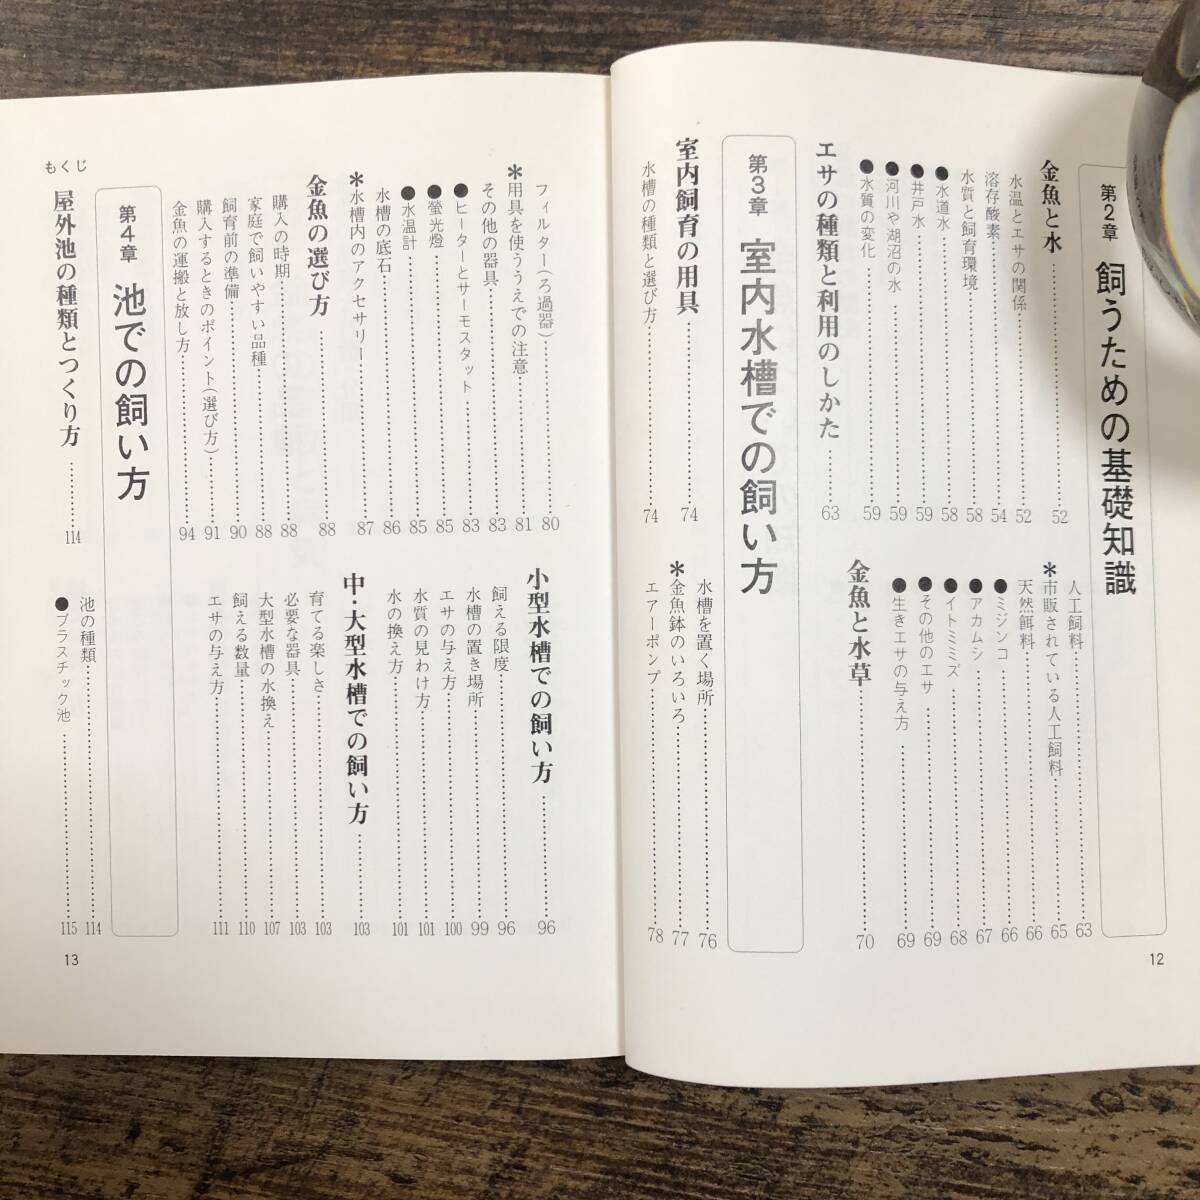 第2章 飼うための基礎知識
金魚と水……52
水温とエサの関係……52
溶存酸素……54
水質と飼育環境……58
●水道水……58
●井戸水……59
●河川や湖沼の水……59
●水質の変化……59
エサの種類と利用のしかた……63
人工飼料……63
*市販されている人工飼料……65
天然餌料……66
●ミジンコ……66
●アカムシ……67
●イトミミズ……68
●その他のエサ……69
●生きエサの与え方……69
金魚と水草……70
第3章 室内水槽での飼い方
室内飼育の用具……74
水槽の種類と選び方……74
水槽を置く場所……76
*金魚鉢のいろいろ……77
エアーポンプ……78
12
フィルター(ろ過器)……80
*用具を使ううえでの注意……81
その他の器具……83
●ヒーターとサーモスタット……83
●螢光燈……85
●水温計……85
水槽の底石……86
*水槽内のアクセサリー……87
金魚の選び方……88
購入の時期……88
家庭で飼いやすい品種……88
飼育前の準備……90
購入するときのポイント(選び方)……91
金魚の運搬と放し方……94
小型水槽での飼い方……96
飼える限度……96
水槽の置き場所……99
エサの与え方……100
水質の見わけ方……101
水の換え方……101
中・大型水槽での飼い方……103
育てる楽しさ……103
必要な器具……103
大型水槽の水換え……107
飼える数量……110
エサの与え方……111
第4章 池での飼い方
屋外池の種類とつくり方……114
池の種類……114
●プラスチック池……115
もくじ
13